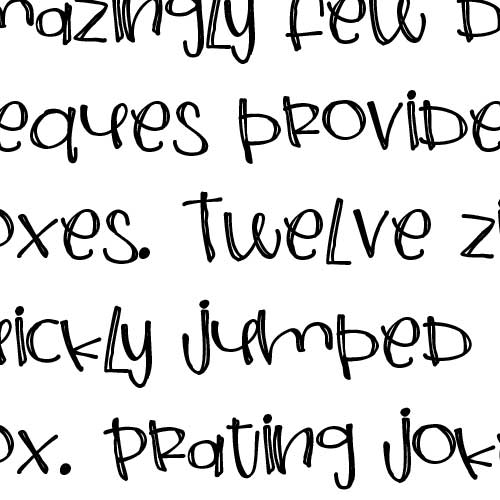 mazingly few d
eques provide
oxes. Twelve zi
uickly jumped
ox. Prating jok